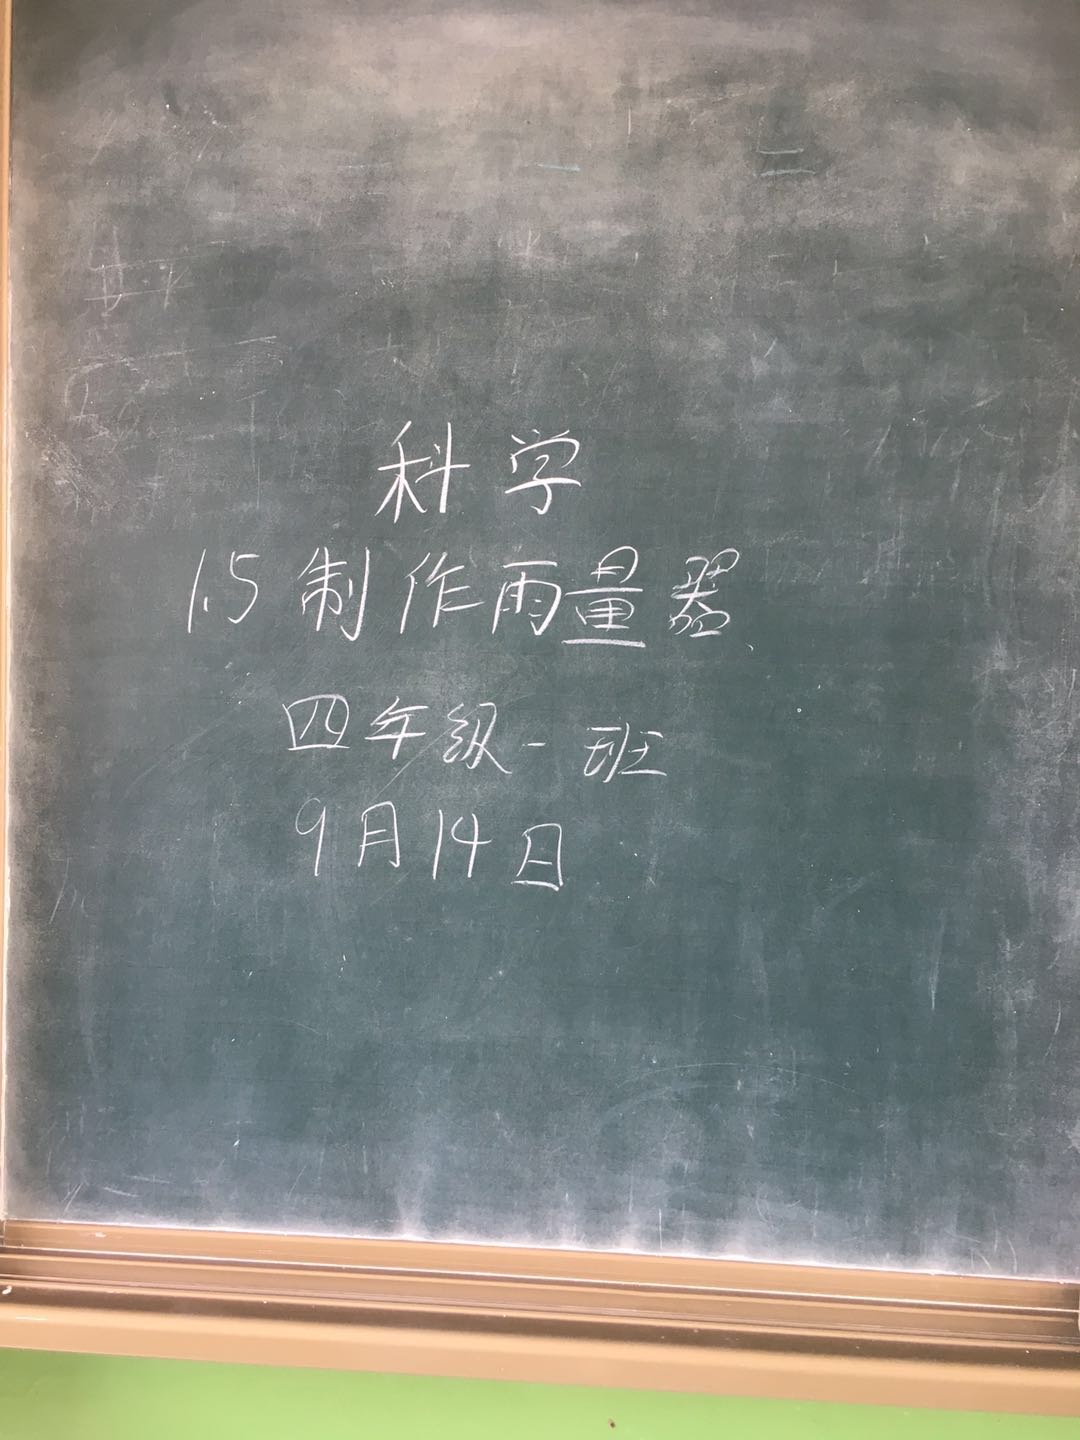 科学
1.5制作雨量器
四年级一班
9月14日